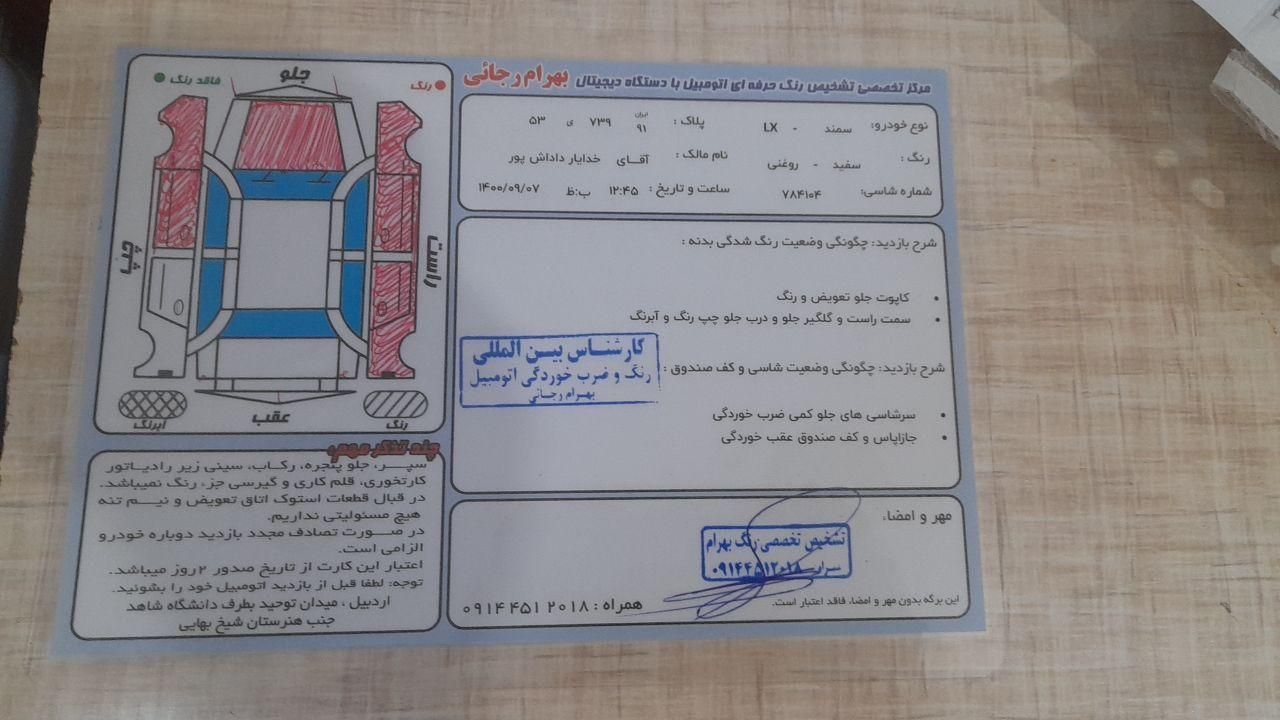 مرکز تخصصی تشخیص رنگ حرفه ای اتومبیل با دستگاه دیجیتال بهرام رجائی
نوع خودرو: سمند - LX پلاک: ایران ۹۱ ۷۳۹ ی ۵۳
رنگ: سفید - روغنی نام مالک: آقـــای خدایار داداش پور
شماره شاسی: ۷۸۴۱۰۴ ساعت و تاریخ: ۱۲:۴۵ ب:ظ ۱۴۰۰/۰۹/۰۷
شرح بازدید: چگونگی وضعیت رنگ شدگی بدنه :
• کاپوت جلو تعویض و رنگ
• سمت راست و گلگیر جلو و درب جلو چپ رنگ و آبرنگ
شرح بازدید: چگونگی وضعیت شاسی و کف صندوق :
• سرشاسی های جلو کمی ضرب خوردگی
• جازاپاس و کف صندوق عقب خوردگی
کارشناس بین المللی
رنگ و ضرب خوردگی اتومبیل
بهرام رجائی
مهر و امضاء
تشخیص تخصصی رنگ بهرام
همراه : ۰۹۱۴ ۴۵۱ ۲۰۱۸
این برگه بدون مهر و امضاء فاقد اعتبار است.
رنگ
فاقد رنگ
جلو
راست
چپ
عقب
رنگ
آبرنگ
چند تذکر مهم:
سپـــر، جلو پنجره، رکـاب، سینی زیر رادیـاتور
کارتخوری، قلم کاری و گیرسی جزء رنگ نمیباشد.
در قبال قطعات استوک اتاق تعویض و نیـــم تنه
هیچ مسئولیتی نداریم.
در صـــورت تصادف مجدد بازدید دوباره خودرو
الزامی است.
اعتبار این کارت از تاریخ صدور ۲ روز میباشد.
توجه: لطفا قبل از بازدید اتومبیل خود را بشوئید.
اردبیل ، میدان توحید بطرف دانشگاه شاهد
جنب هنرستان شیخ بهایی